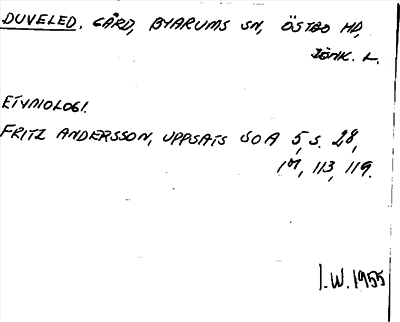 DUVELED. GÅRD, BYARUMS SN, ÖSTBO HD,
JÖNK. L.
ETYMOLOGI.
FRITZ ANDERSSON, UPPSATS SOA 5, S. 28,
113, 119.
I.W. 1955